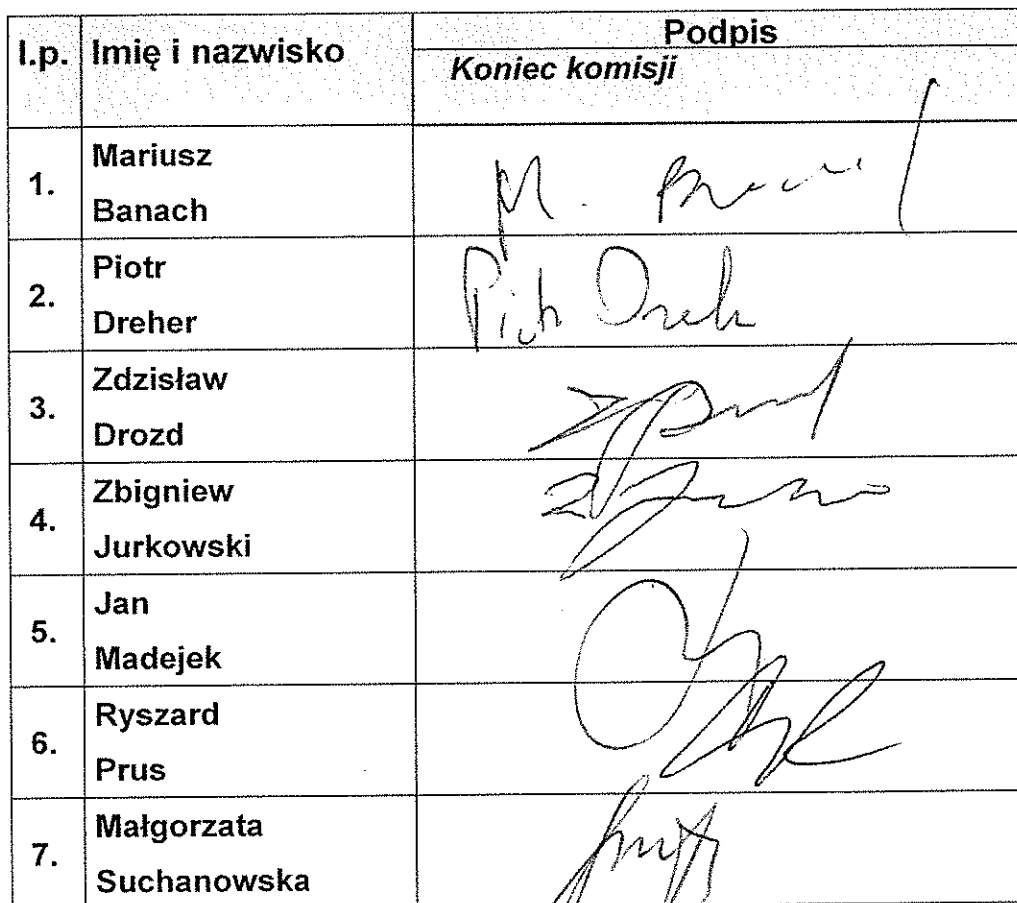 l.p. Imię i nazwisko Podpis
Koniec komisji
1. Mariusz
Banach
M.
2. Piotr
Dreher
Piotr Dreh
3. Zdzisław
Drozd
4. Zbigniew
Jurkowski
5. Jan
Madejek
6. Ryszard
Prus
7. Małgorzata
Suchanowska